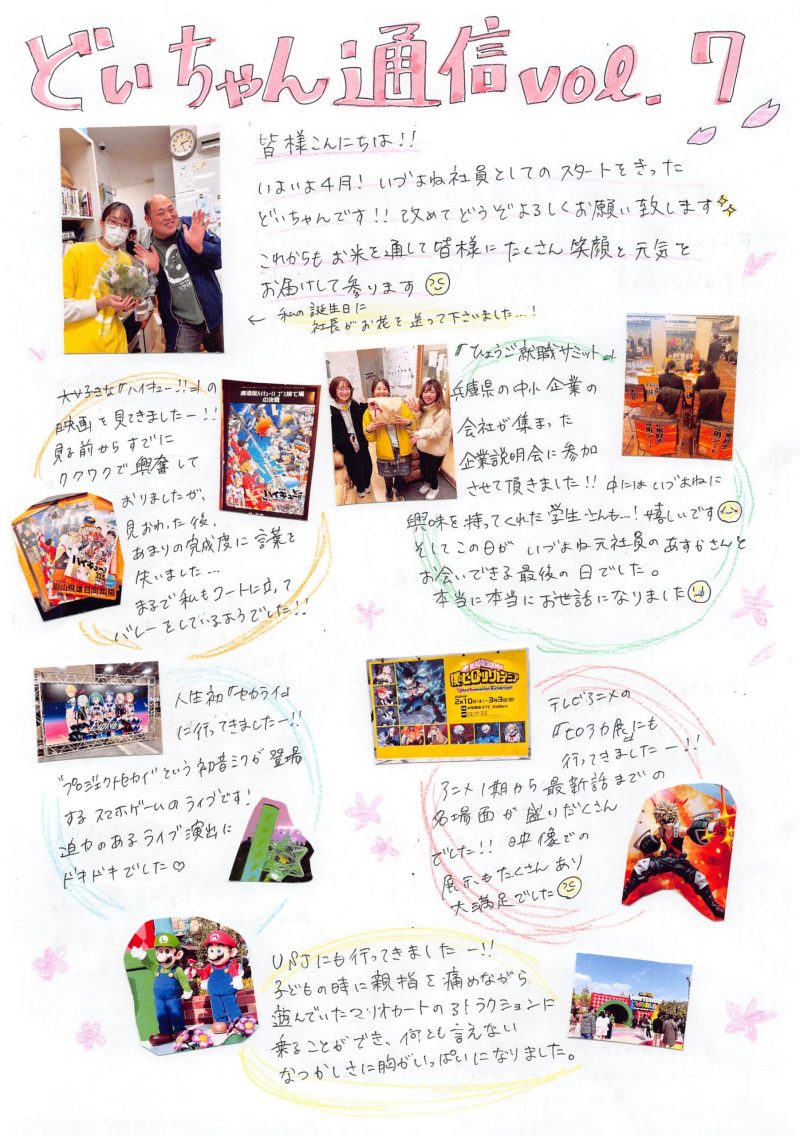 どいちゃん通信vol.7
皆様こんにちは!!
いよいよ4月!いづよね社員としてのスタートをきった
どいちゃんです!!改めてどうぞよろしくお願い致します
これからもお米を通して皆様にたくさん笑顔と元気を
お届けして参ります
← 私の誕生日に
社長がお花を送って下さいました…!
大好きな『ハイキュー!!』の
映画を見てきましたー!!
見る前からすでに
ワクワクで興奮して
おりましたが、
見おわった後、
あまりの完成度に言葉を
失いました…
まるで私もコートに立って
バレーをしているようでした!!
劇場版ハイキュー!! ゴミ捨て場
の決戦
ハイキュー!!
影山飛雄日向翔陽
『ひょうご就職サミット』
兵庫県の中小企業の
会社が集まった
企業説明会に参加
させて頂きました!!中にはいづよねに
興味を持ってくれた学生さんも…!嬉しいです
そしてこの日がいづよね元社員のあすかさんと
お会いできる最後の日でした。
本当に本当にお世話になりました
人生初『セカライ』
に行ってきましたー!!
"プロジェクトセカイ"という初音ミクが登場
するスマホゲームのライブです!
迫力のあるライブ演出に
ドキドキでした♡
MY HERO ACADEMIA
僕のヒーローアカデミア
2月10日(土)-3月3日(日)
テレビアニメの
『ヒロアカ展』にも
行ってきましたー!!
アニメ1期から最新話までの
名場面が盛りだくさん
でした!!映像での
展示もたくさんあり
大満足でした
USJにも行ってきましたー!!
子どもの時に親指を痛めながら
遊んでいたマリオカートのアトラクションに
乗ることができ、何とも言えない
なつかしさに胸がいっぱいになりました。